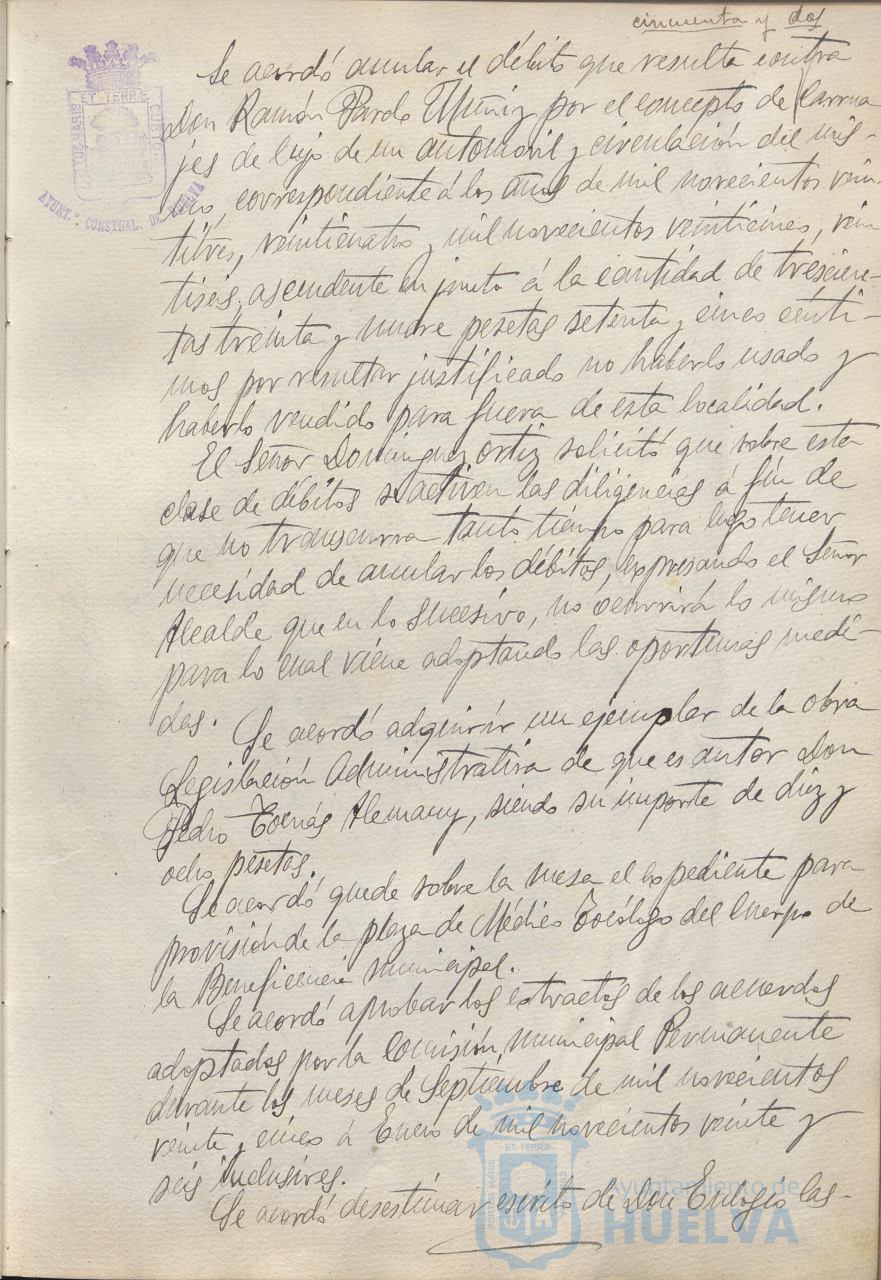 cincuenta y dos
Se acordó anular el débito que resulta contra
Don Ramón Pardo Muñiz por el concepto de Carrua
jes de lujo de un automovil y circulación del mis-
mo, correspondiente á los años de mil novecientos vein-
titres, veinticuatro y mil novecientos veinticinco, vein
tiseis, ascendente en junto á la cantidad de trescien-
tas treinta y nueve pesetas setenta y cinco cénti-
mos por resultar justificado no haberlo usado y
haberlo vendido para fuera de esta localidad.
El Señor Dominguez Ortiz solicitó que sobre esta
clase de débitos se activen las diligencias á fin de
que no transcurra tanto tiempo para luego tener
necesidad de anular los débitos, expresando el Señor
Alcalde que en lo sucesivo, no ocurrirá lo mismo
para lo cual viene adoptando las oportunas medi-
das.
Se acordó adquirir un ejemplar de la obra
Legislación Administrativa de que es autor Don
Pedro Alemany, siendo su importe de diez y
ocho pesetas.
Se acordó quede sobre la mesa el expediente para
provisión de la plaza de Médico Tocólogo del Cuerpo de
la Beneficencia municipal.
Se acordó aprobar los extractos de los acuerdos
adoptados por la Comisión municipal Permanente
durante los meses de Septiembre de mil novecientos
veinte y cinco á Enero de mil novecientos veinte y
seis inclusives.
Se acordó desestimar escrito de Don Eulogio las-
ET TERRE
AYUNT.º CONSTNAL. DE HUELVA
ET TERRE
Ayuntamiento de
HUELVA